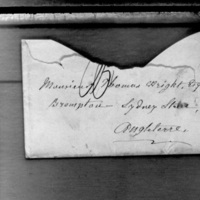 Monsieur Thomas Wright, Esq
Brompton — Sydney
Angleterre.